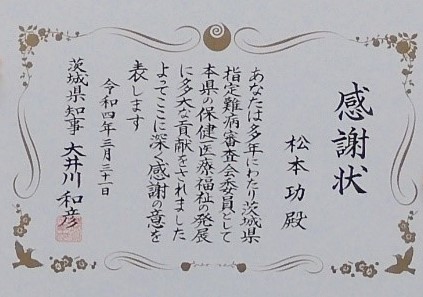 感謝状
松本功殿
あなたは多年にわたり茨城県
指定難病審査会委員として
本県の保健医療福祉の発展
に多大な貢献をされました
よってここに深く感謝の意を
表します
令和四年三月三十一日
茨城県知事 大井川和彦